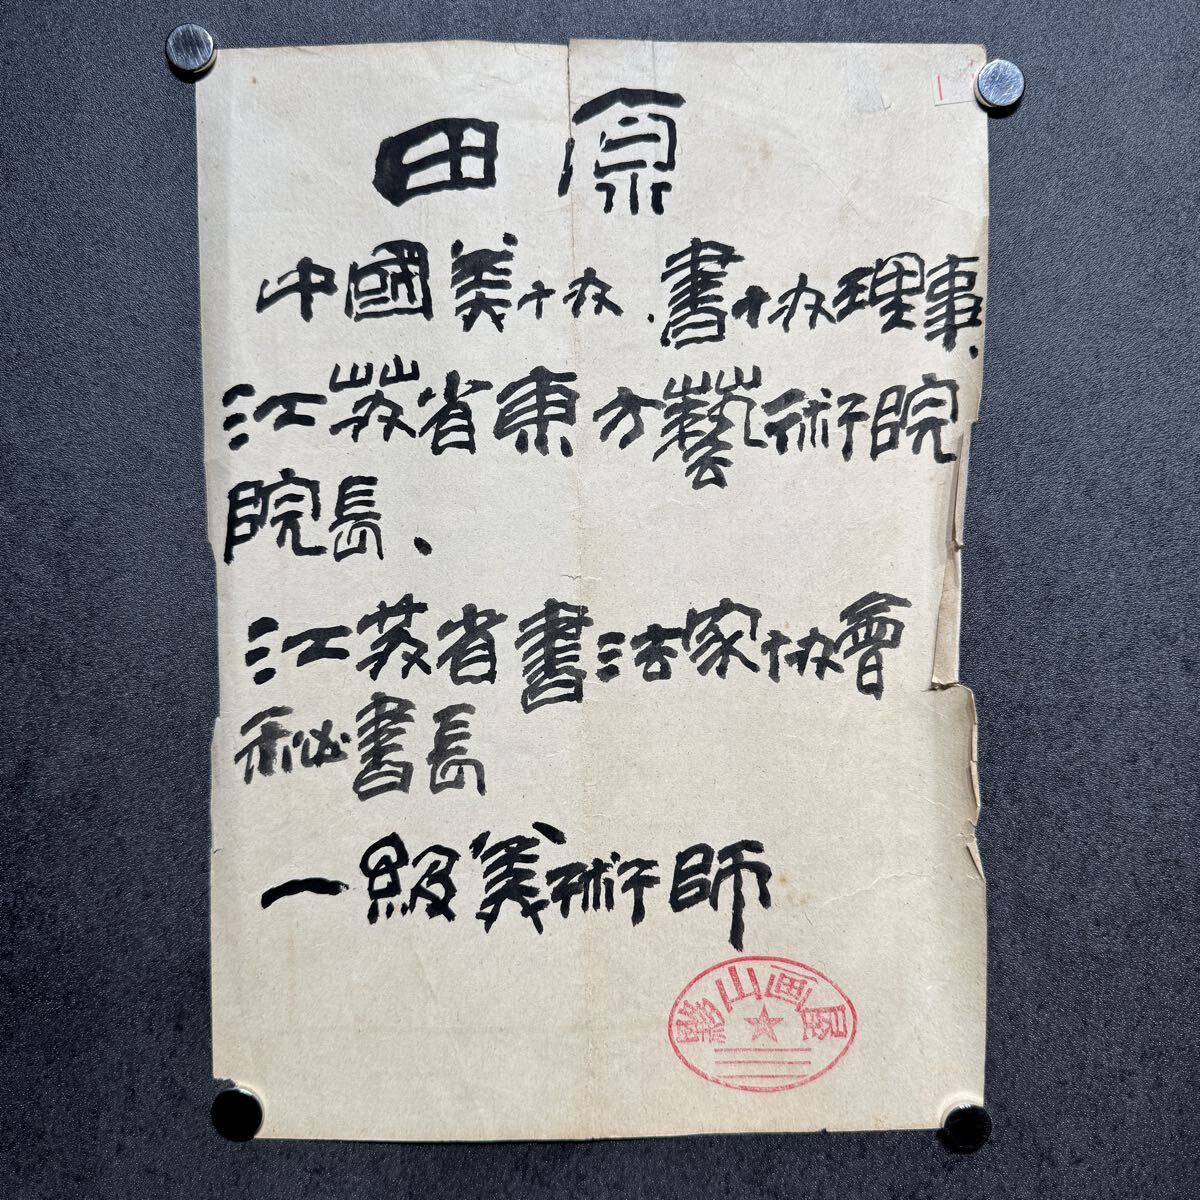 田原
中國美协、書协理事、
江蘇省東方藝術院
院長、
江蘇省書法家协會
秘書長
一級美術師
山画